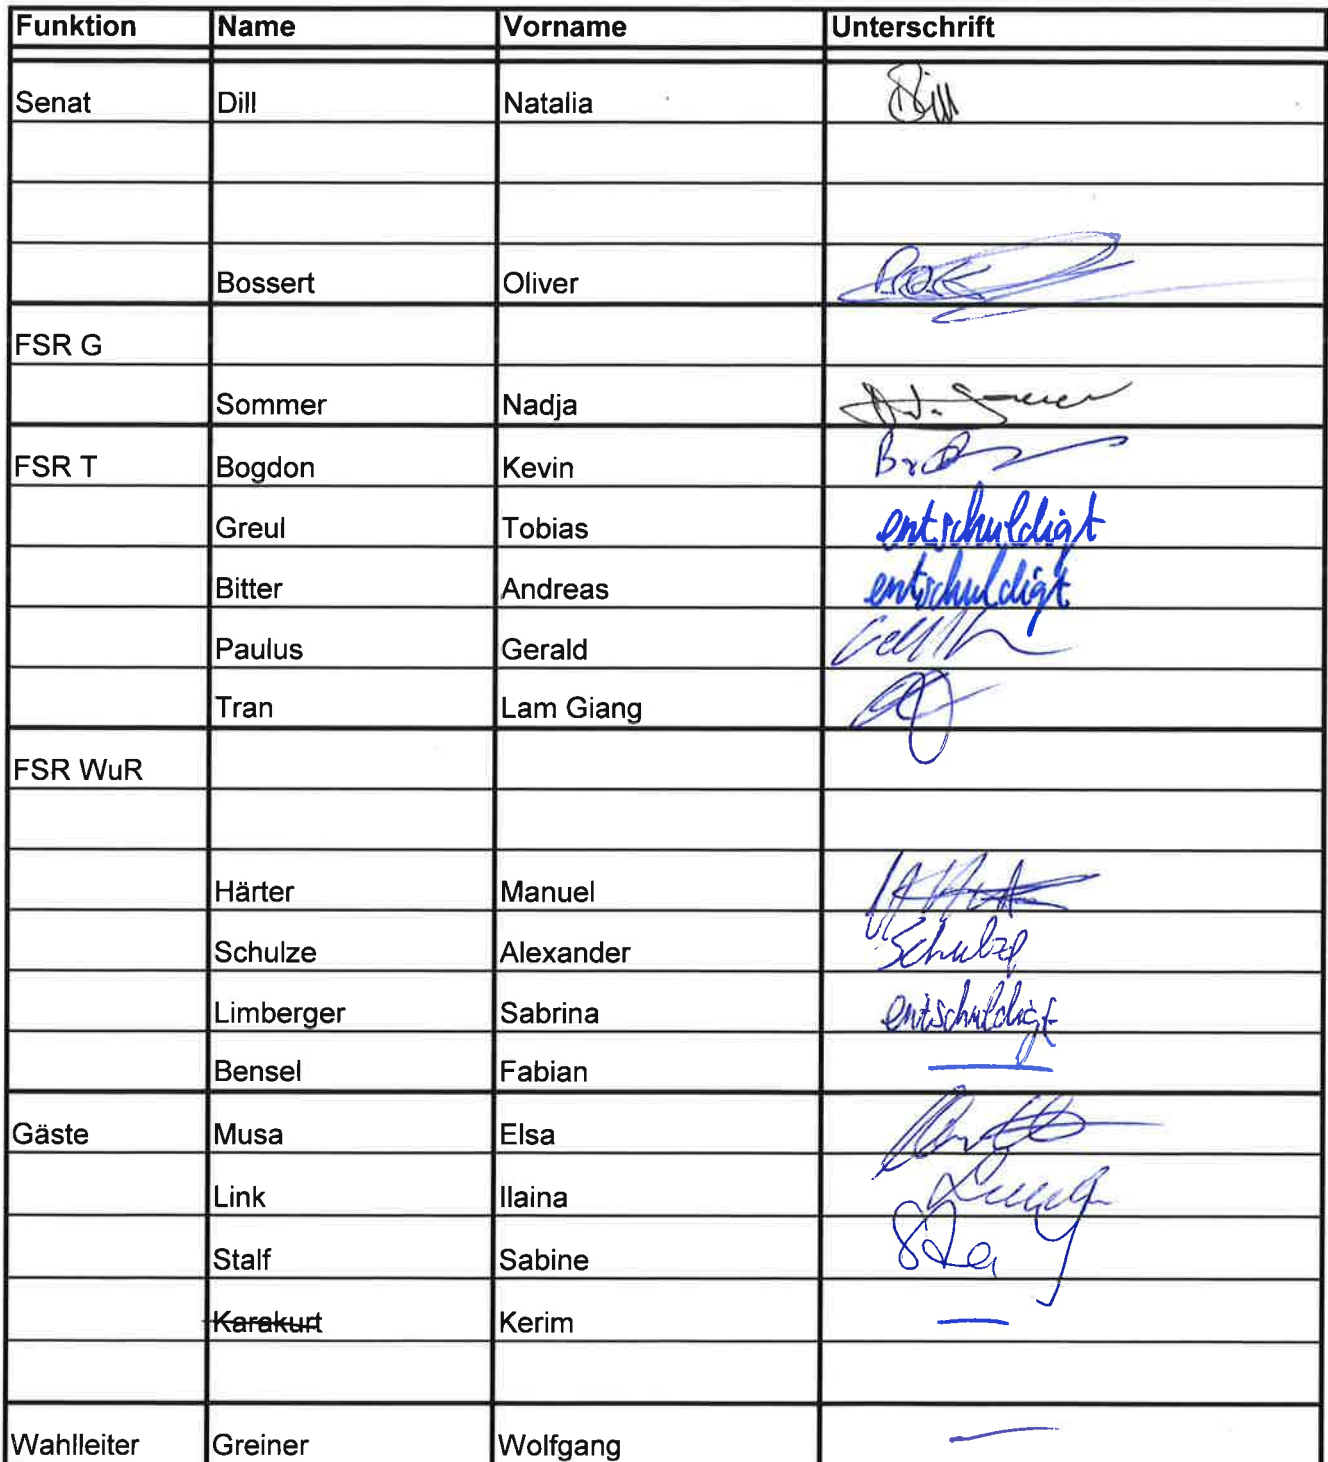 Funktion Name Vorname Unterschrift
Senat Dill Natalia Dill
Bossert Oliver
FSR G
Sommer Nadja
FSR T Bogdon Kevin
Greul Tobias entschuldigt
Bitter Andreas entschuldigt
Paulus Gerald
Tran Lam Giang
FSR WuR
Härter Manuel
Schulze Alexander Schulze
Limberger Sabrina entschuldigt
Bensel Fabian —
Gäste Musa Elsa
Link Ilaina
Stalf Sabine
Karakurt Kerim —
Wahlleiter Greiner Wolfgang —